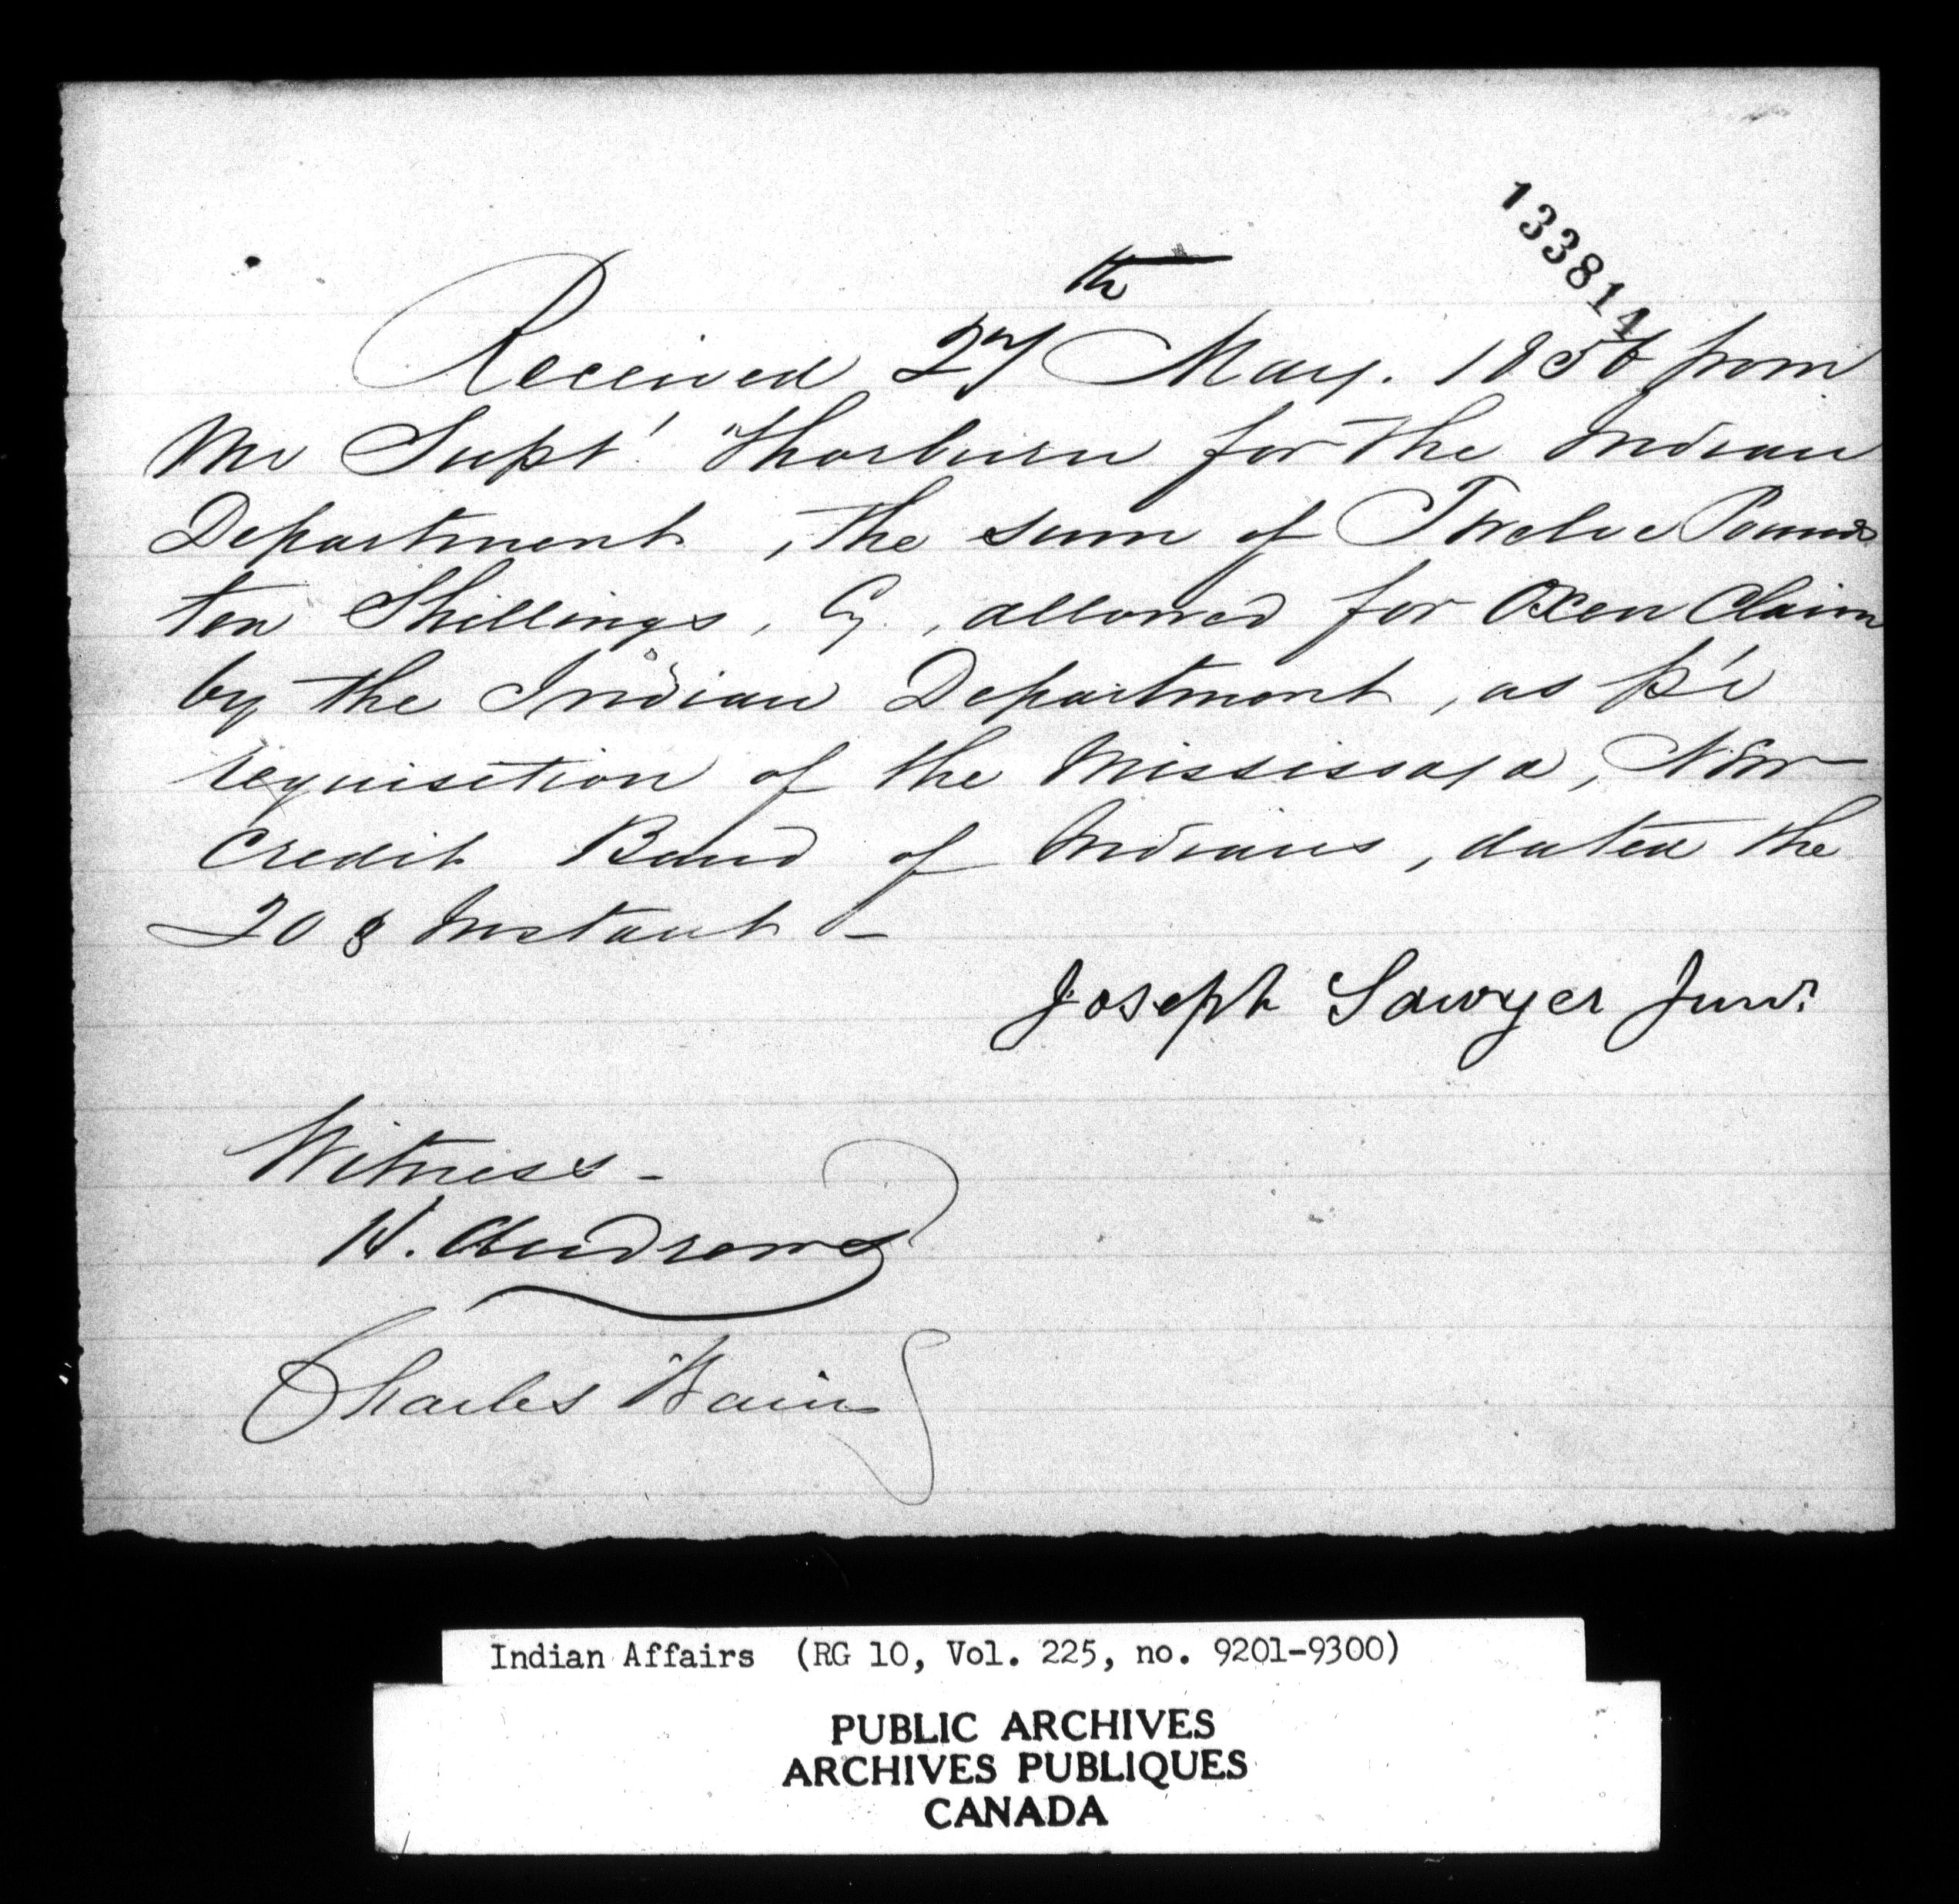 133814
Received 27th May. 1856 from
Mr Supt. Thorburn for the Indian
Department, the sum of Twelve Pounds
ten Shillings, Cy., allowed for Oxen Claim
by the Indian Department, as pr
requisition of the Mississaga, New
Credit Band of Indians, dated the
20 Instant -
Joseph Sawyer Junr.
Witness -
H. Andrews
Charles Bain
Indian Affairs (RG 10, Vol. 225, no. 9201-9300)
PUBLIC ARCHIVES
ARCHIVES PUBLIQUES
CANADA